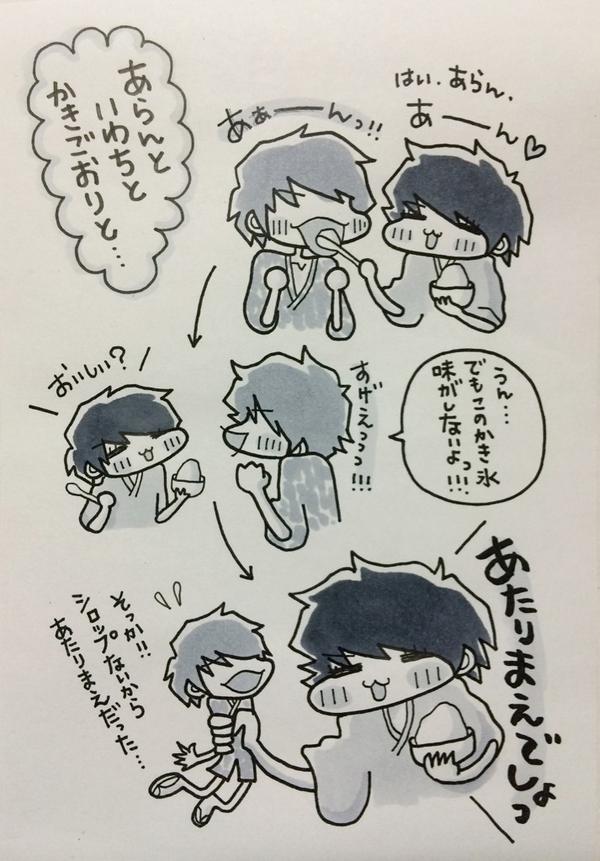 あらんと
いわちと
かきごおりと…
はい、あらん、
あーーん♡
あぁーーんっ!!
おいしい?
すげえっっっ!!!
うん…
でもこのかき氷
味がしないよっ!!!
あたりまえでしょっ
そっか!!
シロップないから
あたりまえだった…